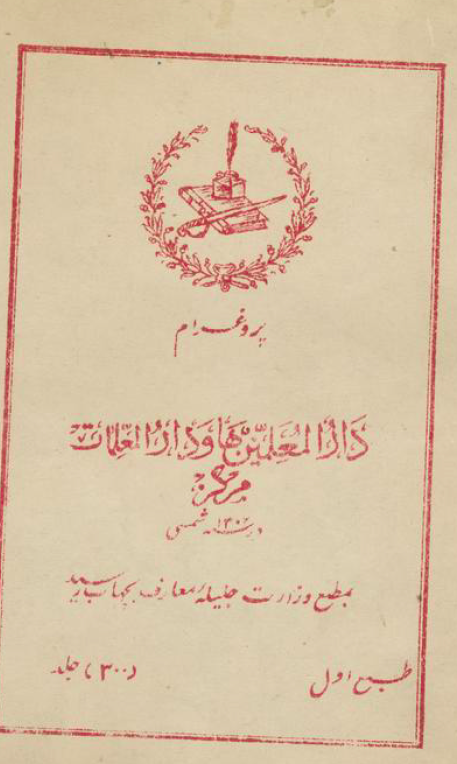 پروغرام
دَارُالمُعَلِّمِیْنْ هَا وَدَارُالمعَلِّمَات
مرکز
در سنه ۱۳۰۲ شمسی
بمطبع وزارت جلیلهٔ معارف بچهاپ رسید
طبع اول (۳۰۰) جلد